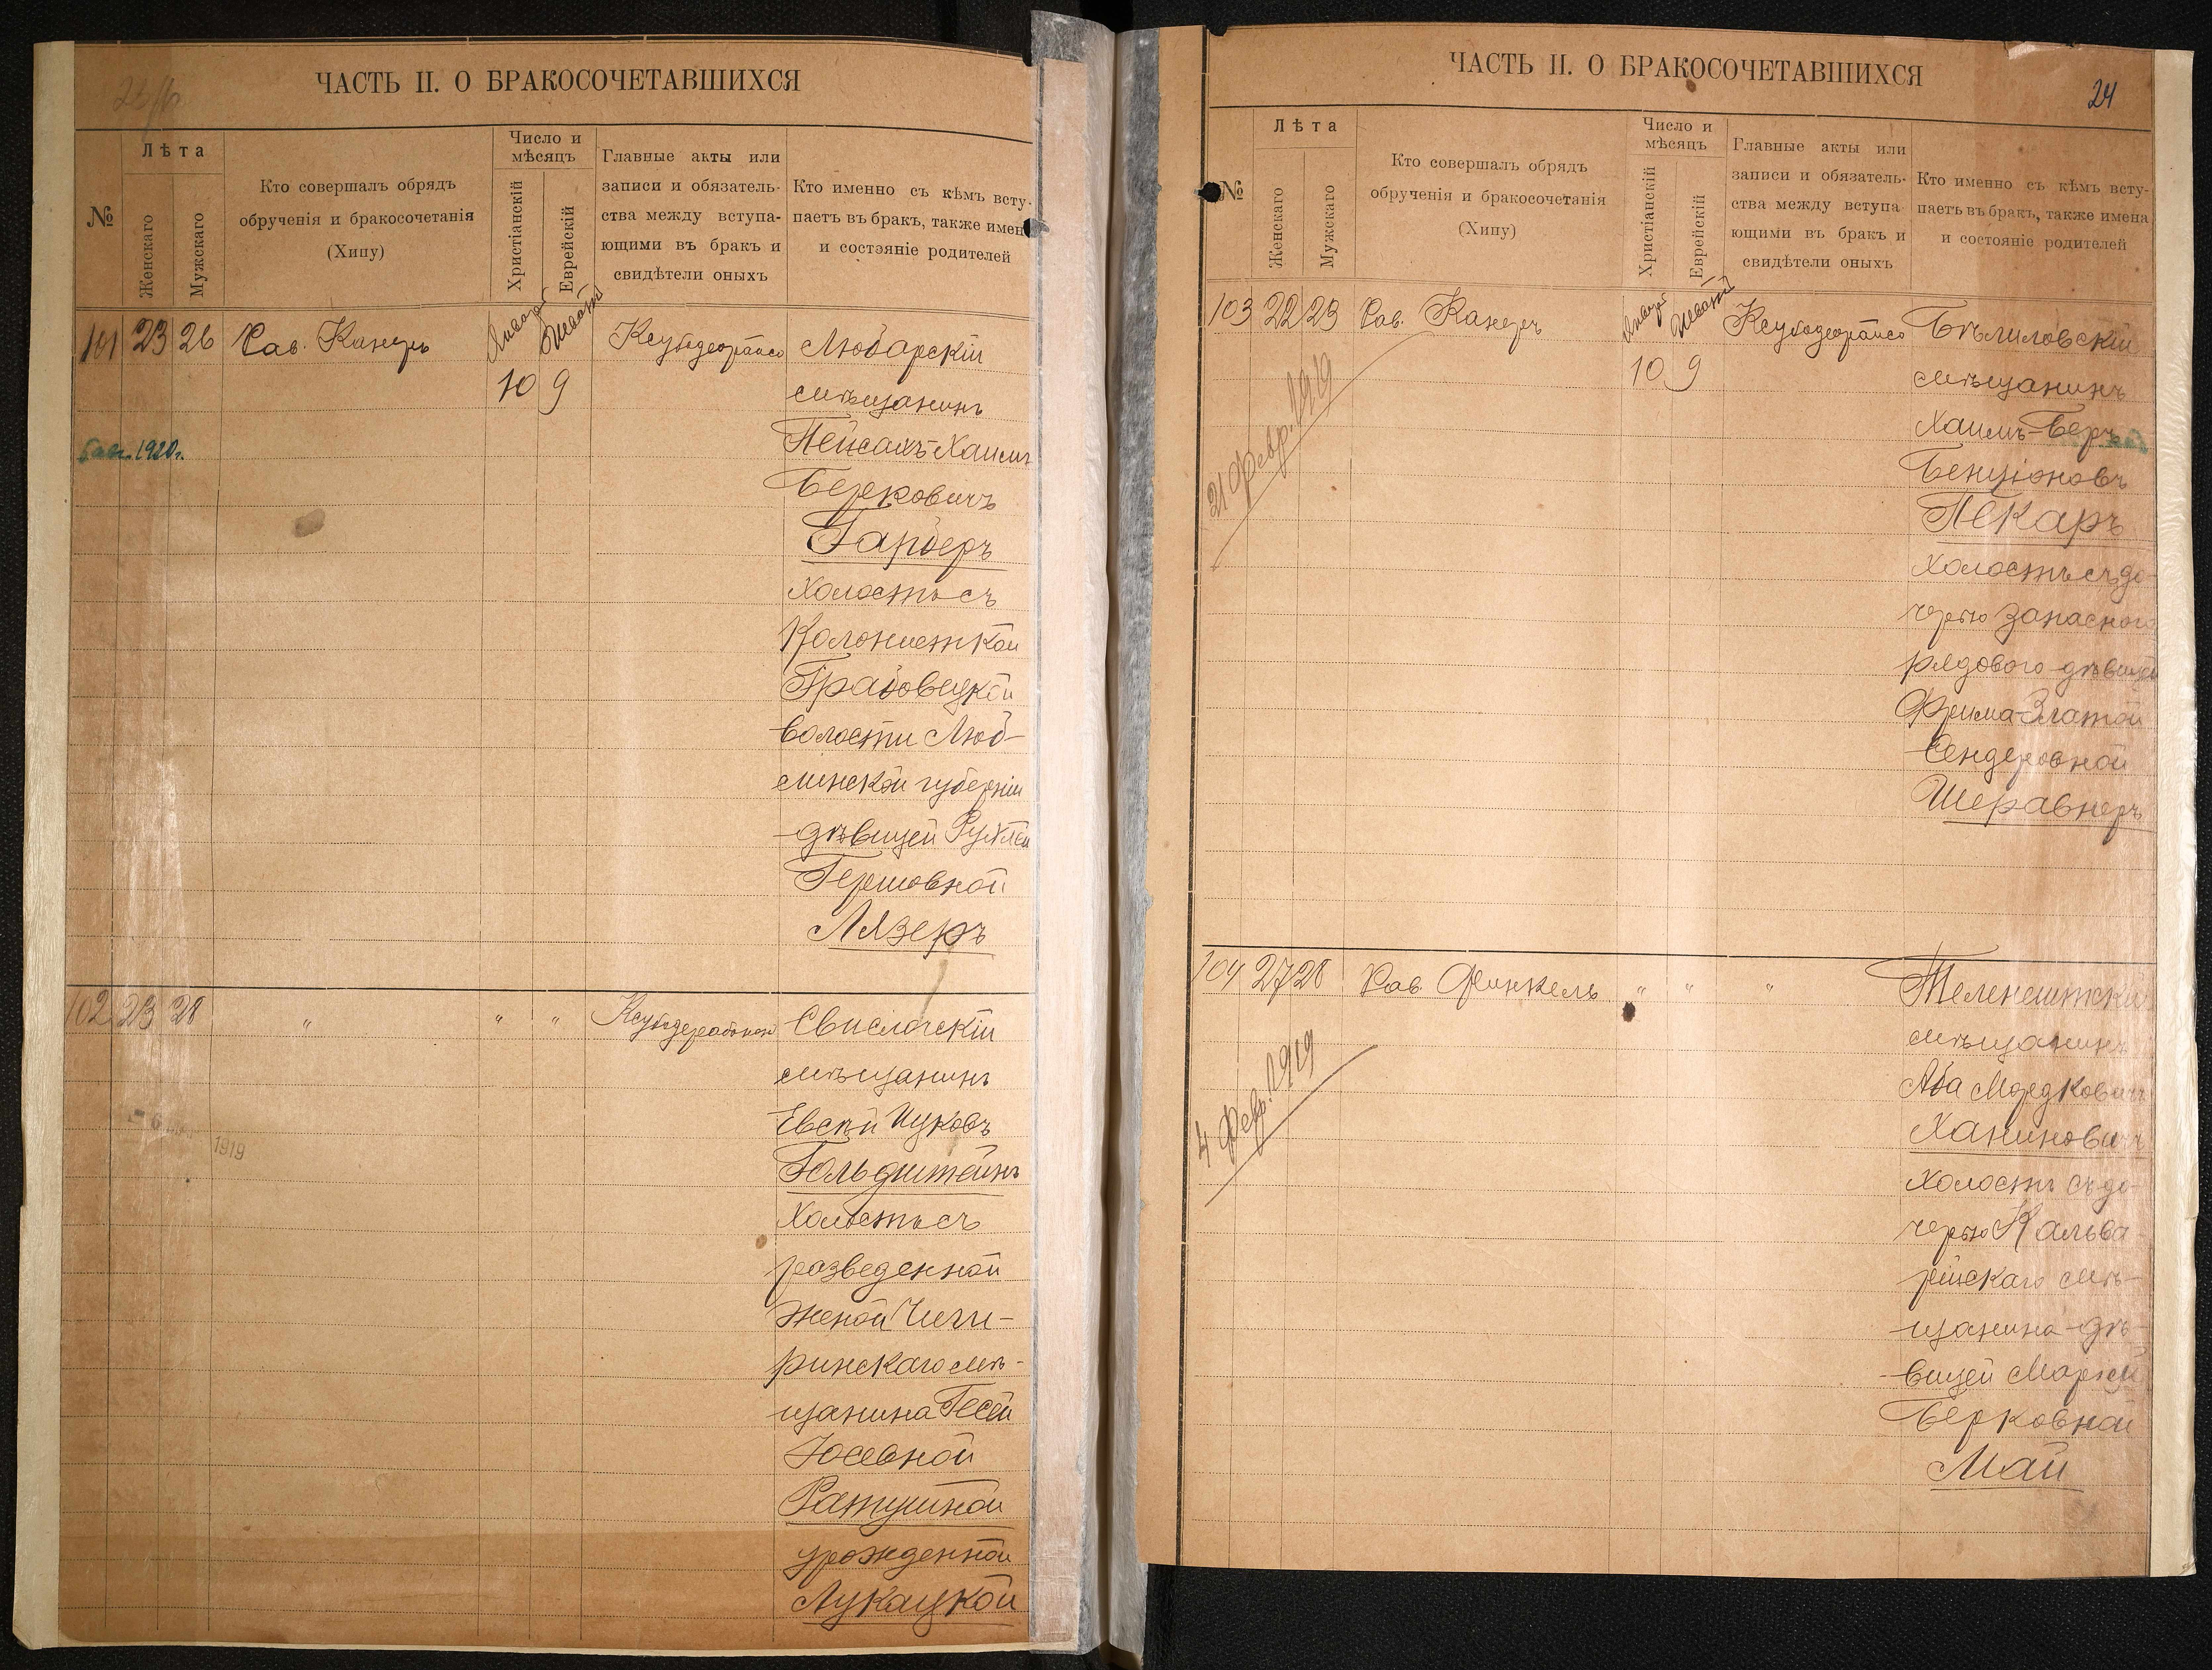 ЧАСТЬ II. О БРАКОСОЧЕТАВШИХСЯ
№
Лѣта
Женскаго
Мужскаго
Кто совершалъ обрядъ
обрученія и бракосочетанія
(Хипу)
Число и
мѣсяцъ
Христіанскій
Еврейскій
Главные акты или
записи и обязатель-
ства между вступа-
ющими въ бракъ и
свидѣтели оныхъ
Кто именно съ кѣмъ всту-
паетъ въ бракъ, также имен
и состояніе родителей
101 23 26 Рав. Канеръ
10 9
Любарскій
мѣщанинъ
Пейсахъ-Хаимъ
Берковичъ
Гарберъ
холостъ съ
Колонисткой
Грабовецкой
волости Люб-
линской губерніи
-дѣвицей Рухлей
Гершовной
Лязеръ
1920г.
102 23 28 " " "
Свислочскій
мѣщанинъ
Евсѣй Ицковъ
Гольдштейнъ
холостъ съ
разведенной
женой Чиги-
ринскаго мѣ-
щанина Гесей
Юсевной
Ратушной
урожденной
Лукацкой
1919
ЧАСТЬ II. О БРАКОСОЧЕТАВШИХСЯ
24
№
Лѣта
Женскаго
Мужскаго
Кто совершалъ обрядъ
обрученія и бракосочетанія
(Хипу)
Число и
мѣсяцъ
Христіанскій
Еврейскій
Главные акты или
записи и обязатель-
ства между вступа
ющими въ бракъ и
свидѣтели оныхъ
Кто именно съ кѣмъ всту-
паетъ въ бракъ, также имена
и состояніе родителей
103 22 23 Рав. Канеръ
10 9
Бѣлиловскій
мѣщанинъ
Хаимъ-Беръ
Бенціоновъ
Пекаръ
холостъ съ до-
черью запасного
рядового-дѣвицей
Фрима-Златой
Сендеровной
Шеравнеръ
21 февр. 1919
104 27 28 Рав. Финкель " " "
Теленештскій
мѣщанинъ
Аба Мордковичъ
Ханиновичъ
холостъ съ до-
черью Кальва-
рійскаго мѣ-
щанина-дѣ-
вицей
Берковной
Май
4 февр. 1919